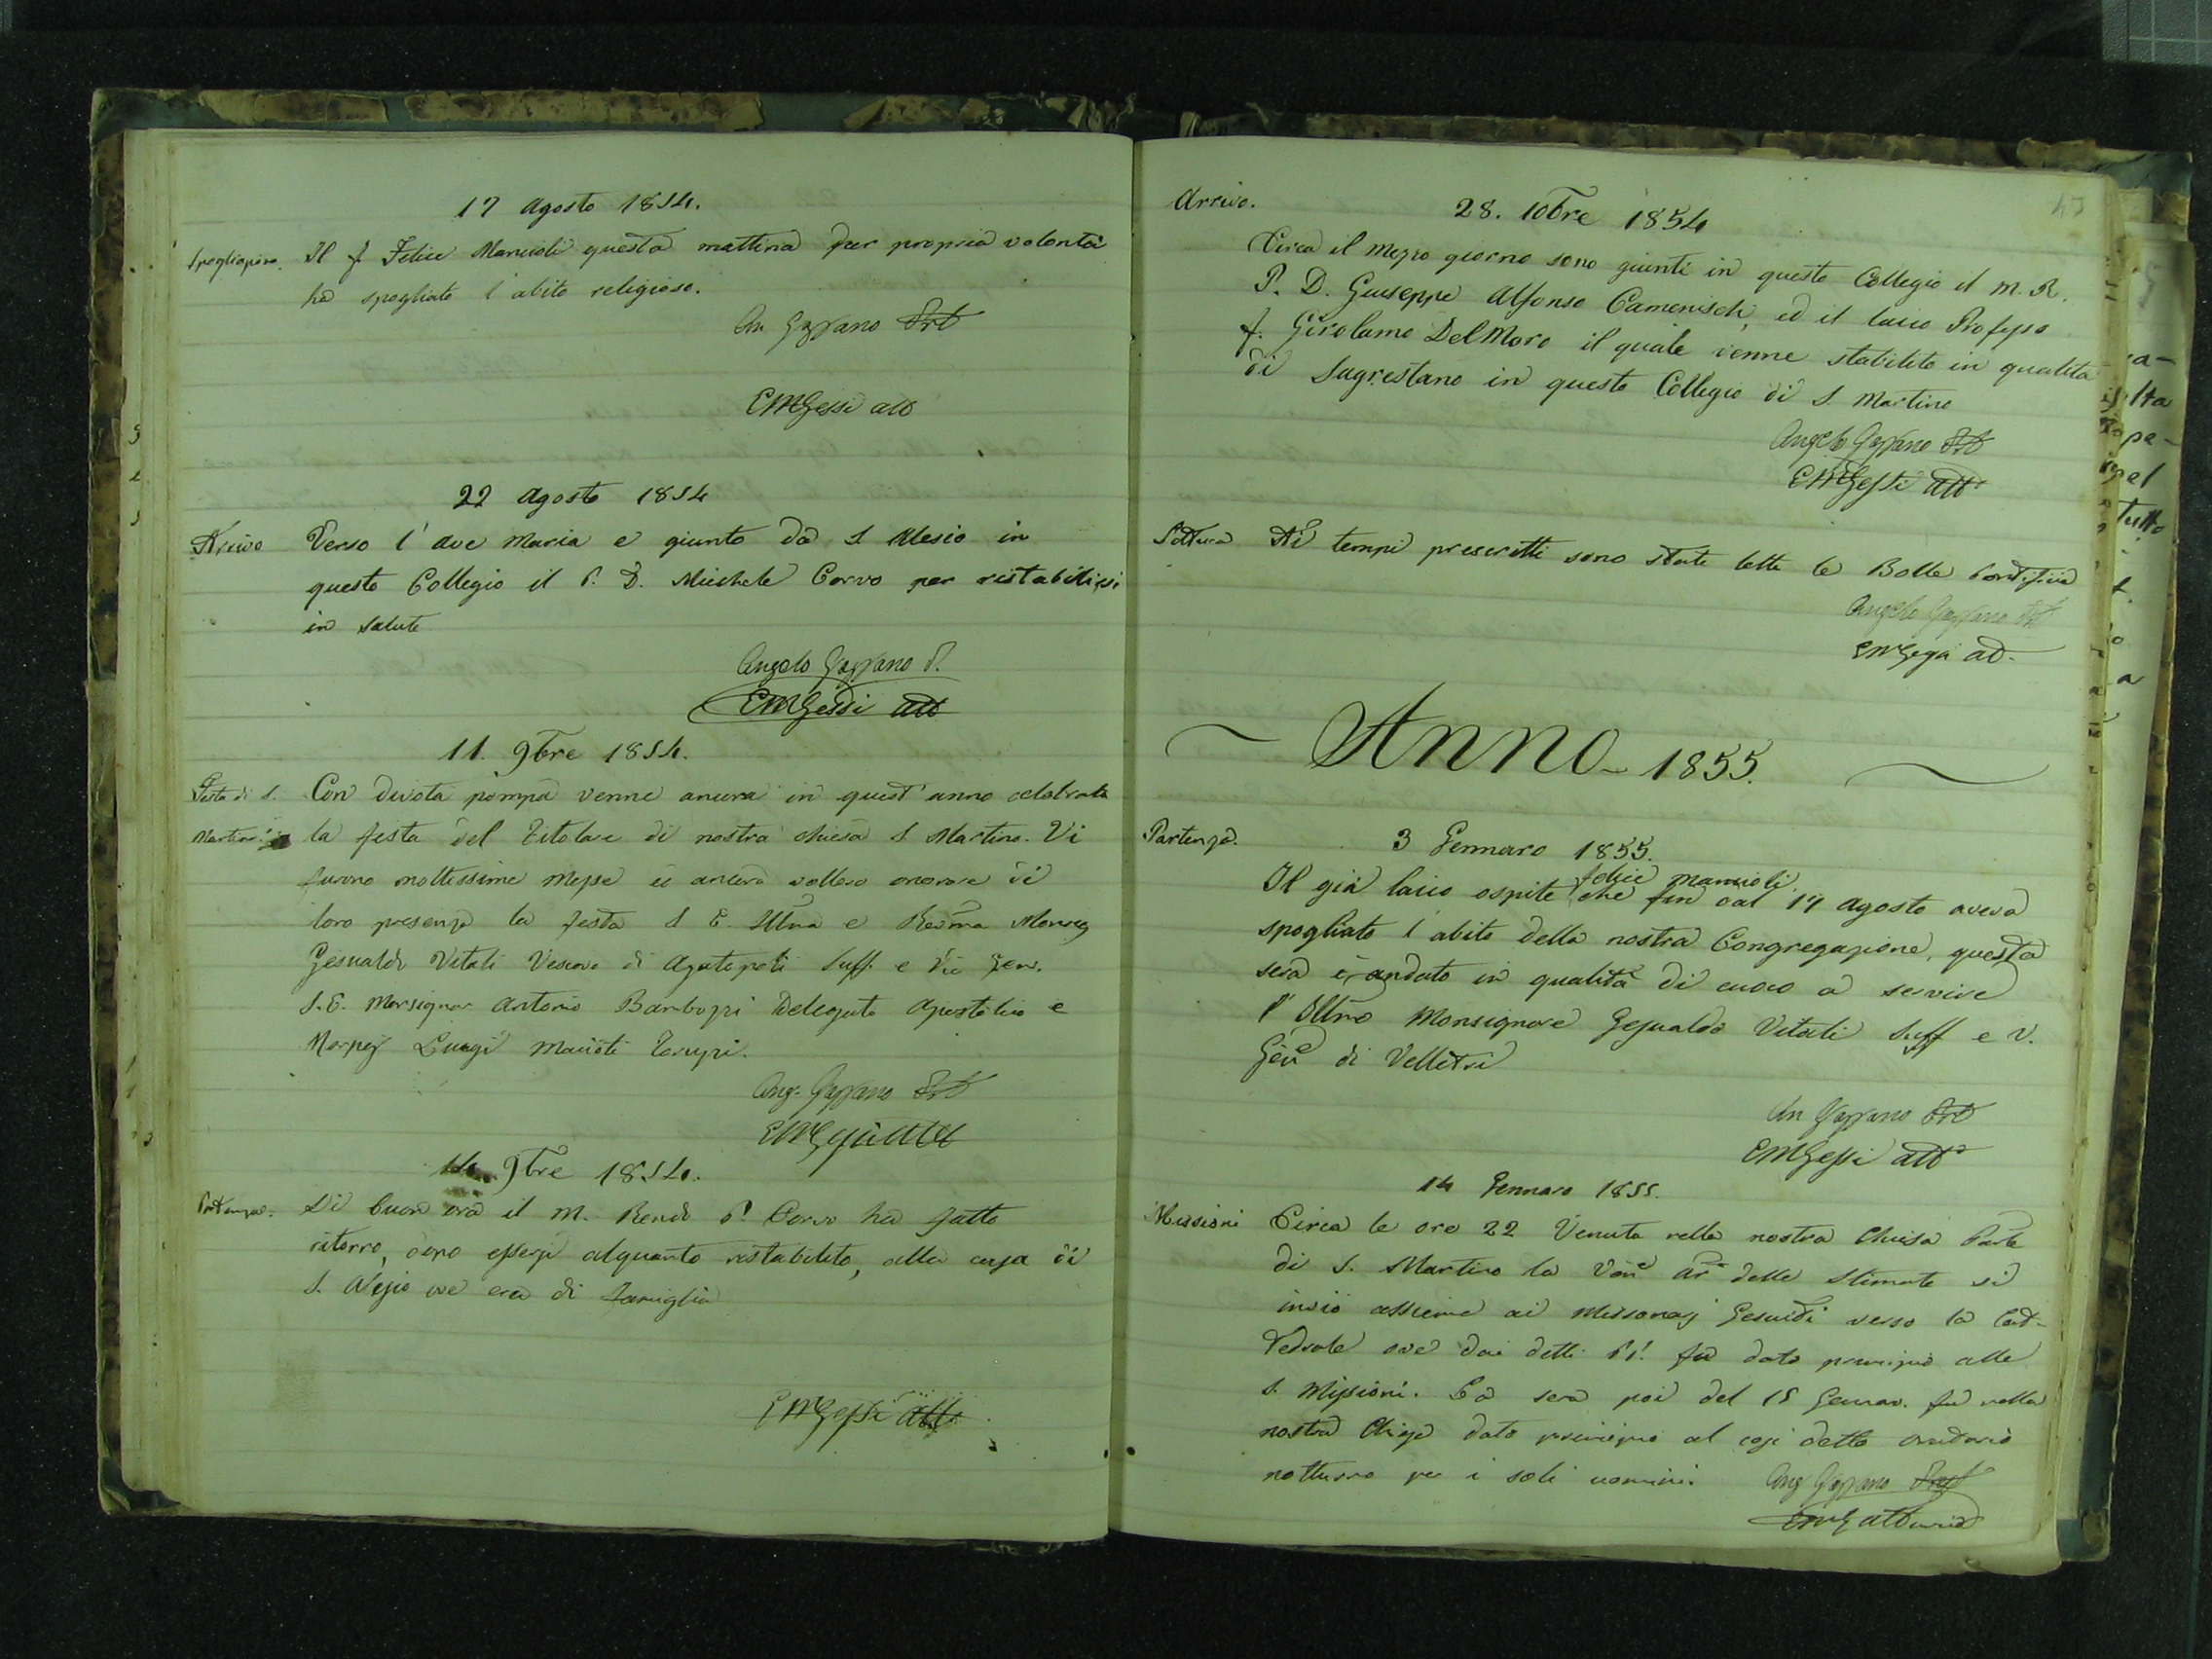 17 Agosto 1854.
Spogliazione. Il f. Felice Mancioli questa mattina per propria volontà
ha spogliato l'abito religioso.
An Gazzano Prto
EMGessi atto
22 Agosto 1854
Arrivo Verso l'ave Maria e giunto da S Alesio in
questo Collegio il P. D. Michele Corvo per ristabilirsi
in salute
Angelo Gazzano P.
EMGessi atto
11. 9bre 1854.
Festa di S. Con divota pompa venne ancora in quest'anno celebrata
Martino. la festa del Titolare di nostra chiesa S Martino. Vi
furono moltissime Messe ed ancora vollero onorare di
loro presenza la festa S E. Illma e Revma Monsig
Gesualdo Vitali Vescovo di Agatopoli Suff. e Vic Gen.
S. E. Monsignor Antonio Delegato Apostolico e
Luigi
Ang. Gazzano Prto
EMGessi atto
14 9bre 1854.
Partenza. Di buon ora il M. Rendo P. Corvo ha fatto
ritorno, dopo essersi alquanto ristabilito, alla casa di
S. Alesio ove era di famiglia
EMGessi atto.
47
Arrivo. 28. 10bre 1854
Circa il mezzo giorno sono giunti in questo Collegio il M. R.
P. D. Giuseppe Alfonso Camenisch, ed il laico Professo
f. Girolamo DelMoro il quale venne stabilito in qualità
di Sagrestano in questo Collegio di S. Martino
Angelo Gazzano Prto
EMGessi atto
Lettura Ai tempi prescritti sono state lette le Bolle Pontificie
Angelo Gazzano Prto
EMGessi ato.
Anno 1855.
Partenza. 3 Gennaro 1855.
felice mancioli
Il già laico ospite che fin dal 17 Agosto aveva
spogliato l'abito della nostra Congregazione, questa
sera è andato in qualità di cuoco a servire
l'Illmo Monsignore Gesualdo Vitali Suff e V.
Gen di Velletri
An Gazzano Prto
EMGessi atto
14 Gennaro 1855.
Missioni Circa le ore 22 Venuta nella nostra Chiesa Parle
di S. Martino la Ven Ar delle Stimate si
inviò assieme ai Missionarj Gesuiti verso la Cat-
tedrale ove dai detti PP. fu dato principio alle
S. Missioni. La sera poi del 15 Gennaro. fu nella
nostra Chiesa dato principio al così detto oratorio
notturno per i soli uomini. Ang Gazzano Prto
EMG